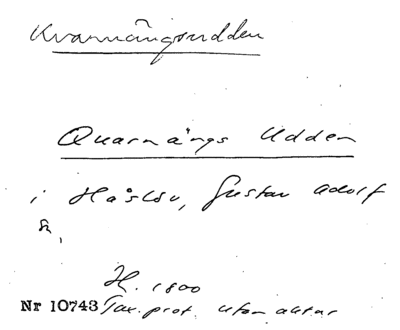 Kvarnängsudden
Quarnängs Udden
i Håslöv, Gustav Adolf
sk,
H. 1800
Nr 10743 Tax. prot. utom aktar